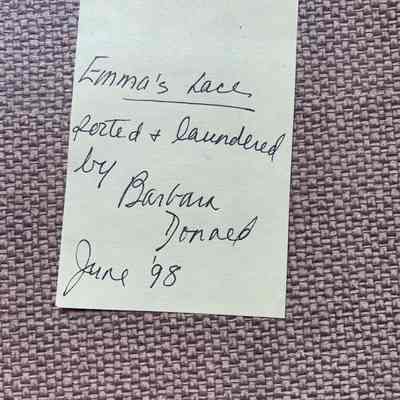 Emma's Lace
Sorted + laundered
by
Barbara
Donned
June '98